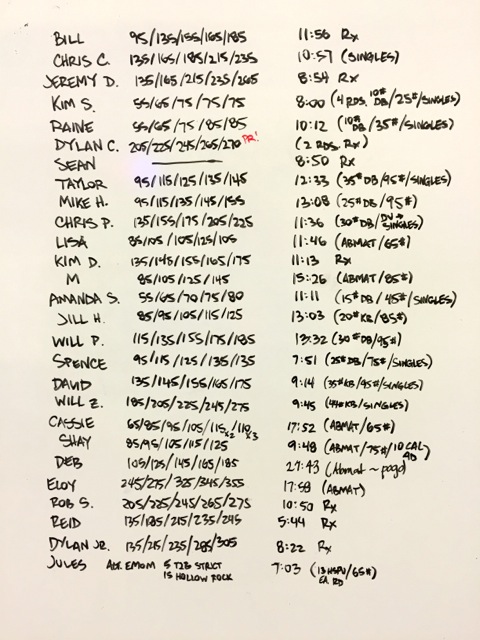 BILL 95/135/155/165/185 11:56 Rx
CHRIS C. 135/165/185/215/235 10:57 (SINGLES)
JEREMY D. 135/165/215/235/265 8:54 Rx
KIM S. 55/65/75/75/75 8:00 (4 RDS. 10# DB/25#/SINGLES)
RAINE 55/65/75/85/85 10:12 (10# DB/35#/SINGLES)
DYLAN C. 205/225/245/265/270 PR! (2 RDS. Rx)
SEAN 8:50 Rx
TAYLOR 95/115/125/135/145 12:33 (35# DB/95#/SINGLES)
MIKE H. 95/115/135/145/155 13:08 (25# DB/95#)
CHRIS P. 135/155/175/205/225 11:36 (30# DB/DU→SINGLES)
LISA 85/105/105/125/105 11:46 (ABMAT/65#)
KIM D. 135/145/155/165/175 11:13 Rx
M 85/105/125/145 15:26 (ABMAT/85#)
AMANDA S. 55/65/70/75/80 11:11 (15# DB/45#/SINGLES)
JILL H. 85/95/105/115/125 13:03 (20# KB/85#)
WILL P. 115/135/155/175/185 13:32 (30# DB/95#)
SPENCE 95/115/125/135/135 7:51 (25# DB/75#/SINGLES)
DAVID 135/145/155/165/175 9:14 (35# KB/95#/SINGLES)
WILL Z. 185/205/225/245/275 9:45 (44# KB/SINGLES)
CASSIE 65/85/95/105/115x2/110x3 17:52 (ABMAT/65#)
SHAY 85/95/105/115/125 9:48 (ABMAT/75#/10 CAL AD
DEB 105/125/145/165/185 27:43 (Abmat ~ pogo)
ELOY 245/275/325/345/355 17:58 (ABMAT)
ROB S. 205/225/245/265/275 10:50 Rx
REID 135/185/215/235/245 5:44 Rx
DYLAN JR. 135/215/235/285/305 8:22 Rx
JULES ALT. EMOM 5 T2B STRICT 7:03 (13 HSPU/65#)
15 HOLLOW ROCK EA. RD